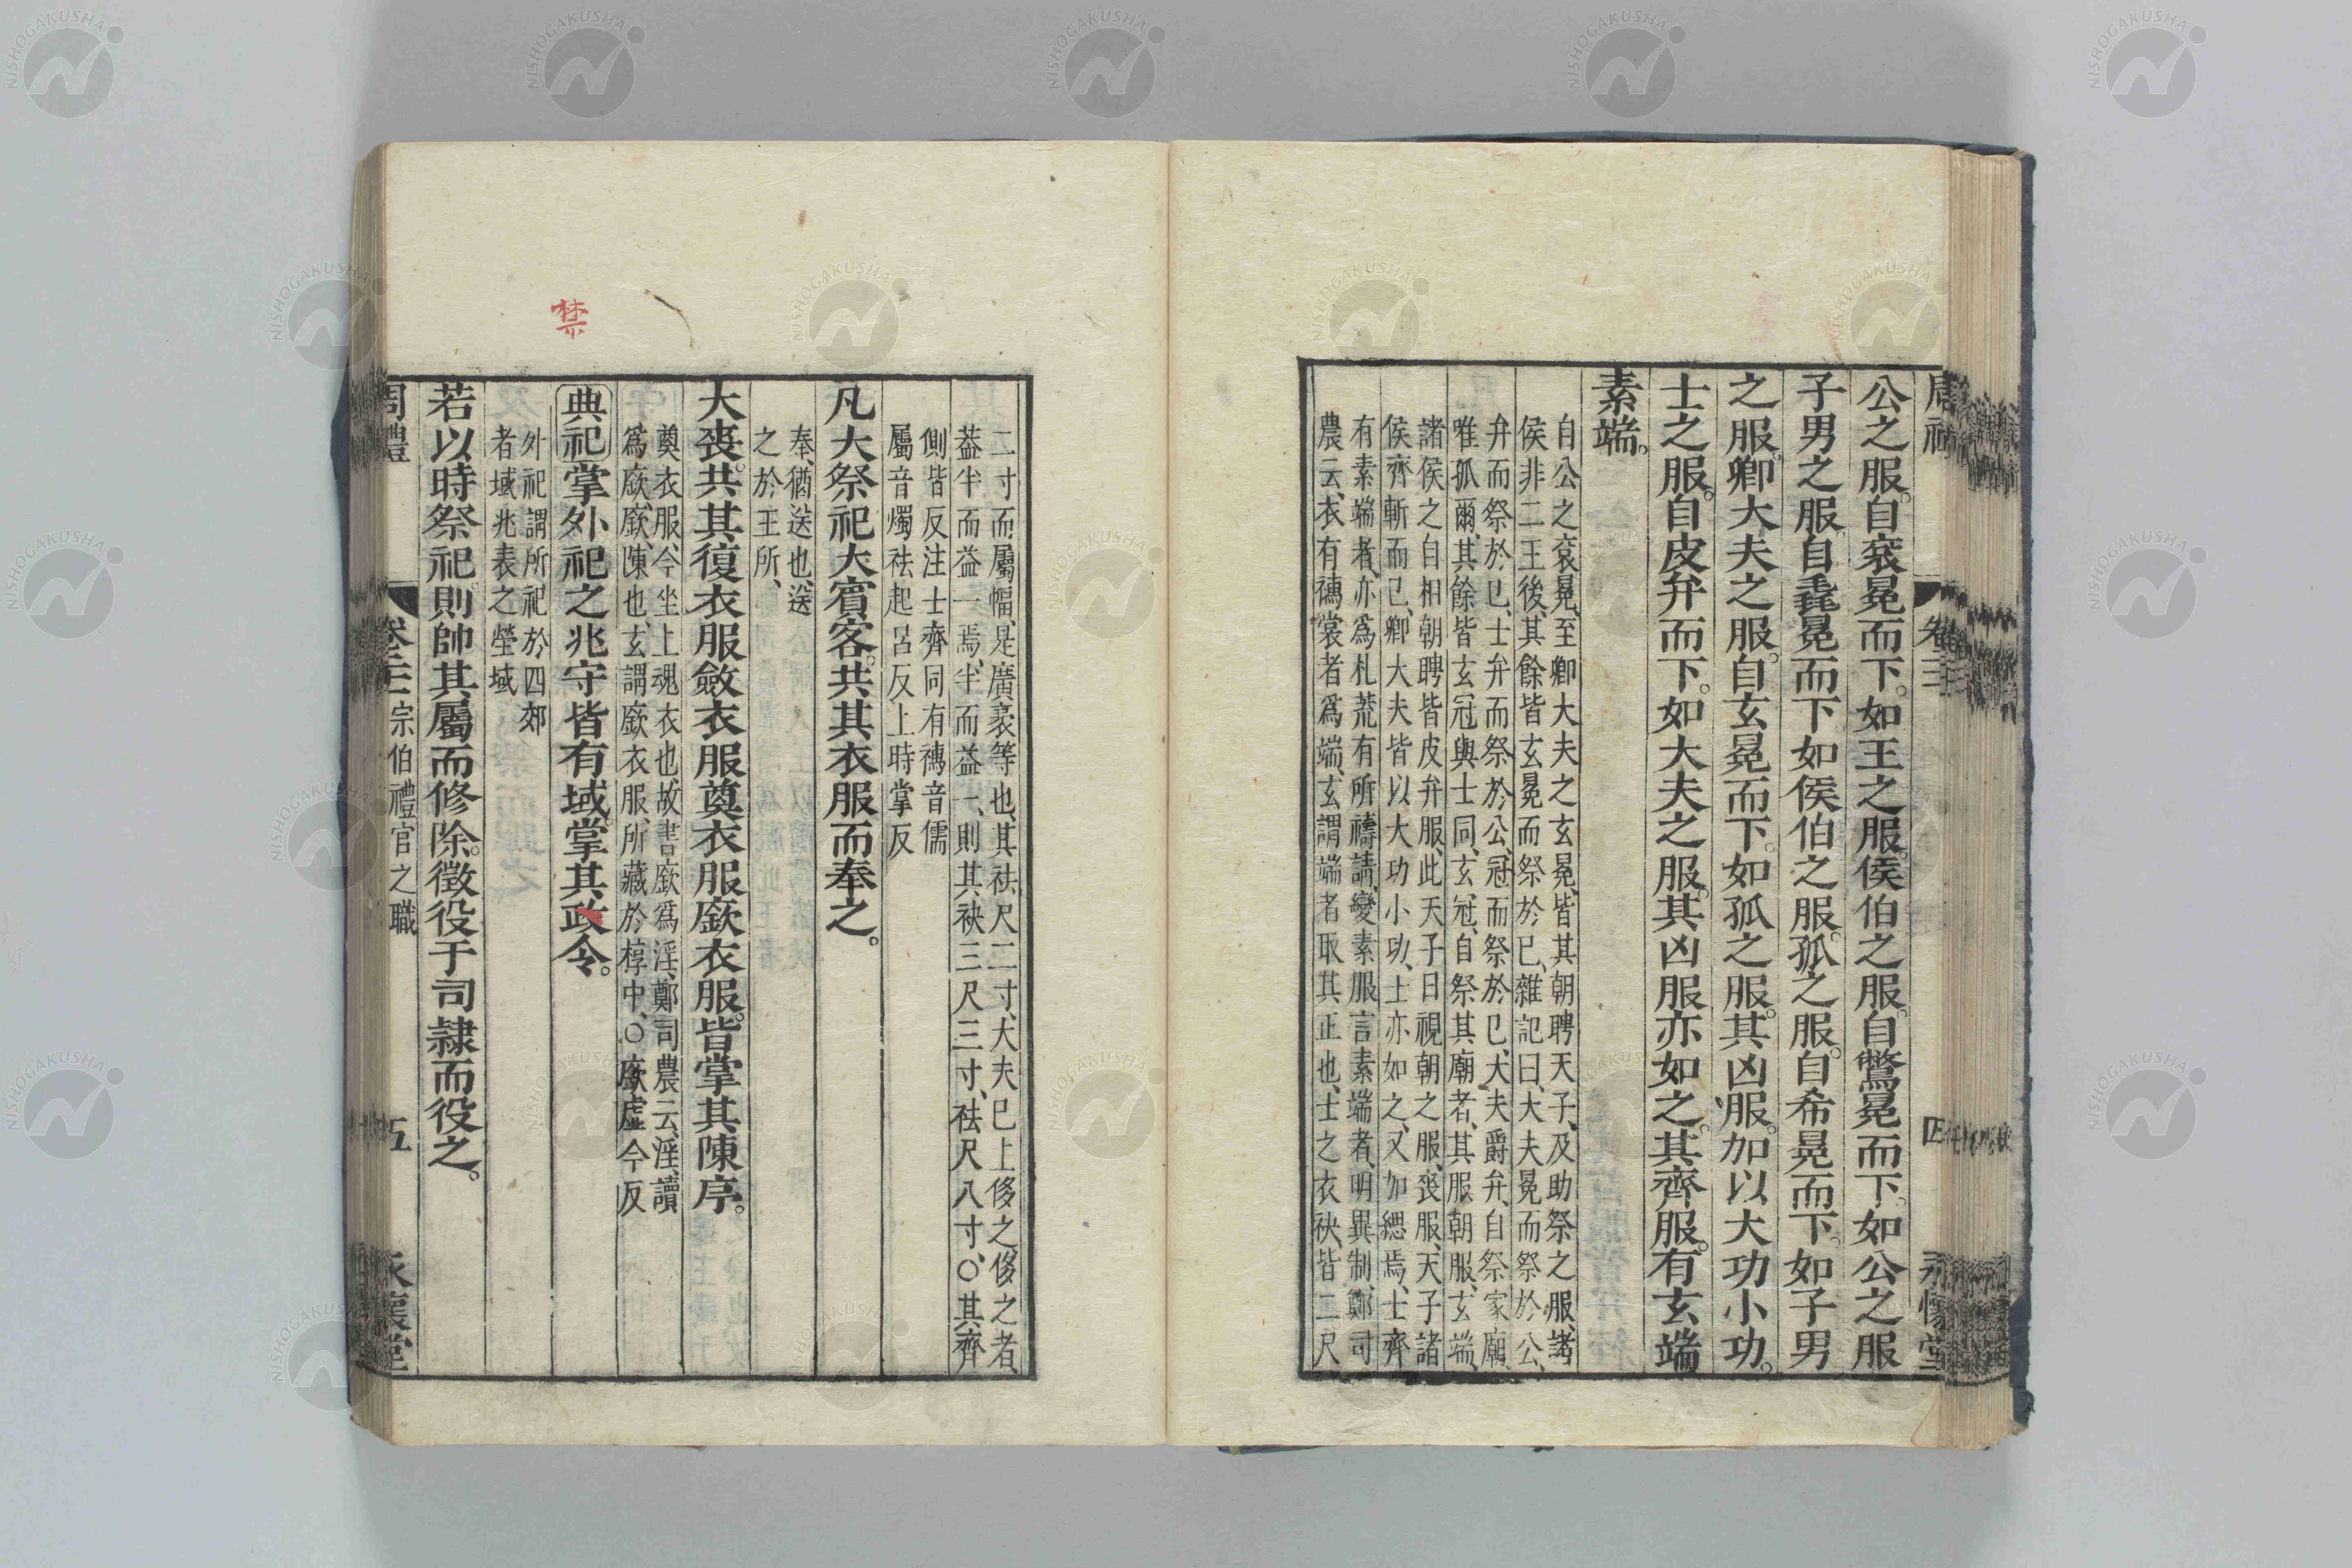 周禮
卷三
四
永懷堂
公之服。自袞冕而下。如王之服。侯伯之服。自鷩冕而下。如公之服
子男之服。自毳冕而下。如侯伯之服。孤之服。自希冕而下。如子男
之服。卿大夫之服。自玄冕而下。如孤之服。其凶服。加以大功小功。
士之服。自皮弁而下。如大夫之服。其凶服亦如之。其齊服。有玄端
素端。
自公之袞冕、至卿大夫之玄冕、皆其朝聘天子、及助祭之服、諸
侯非二王後、其餘皆玄冕而祭於巳、雜記曰、大夫冕而祭於公、
弁而祭於巳、士弁而祭於公、冠而祭於巳、大夫爵弁、自祭家廟、
唯孤爾、其餘皆玄冠與士同、玄冠、自祭其廟者、其服朝服、玄端、
諸侯之自相朝聘皆皮弁服、此天子日視朝之服、喪服、天子諸
侯齊斬而巳、卿大夫皆以大功小功、士亦如之、又加緦焉、士齊
有素端者、亦爲札荒有所禱請、變素服言素端者、明異制、鄭司
農云、衣有襦裳者爲端、玄謂端者取其正也、士之衣袂、皆二尺
二寸而屬幅、是廣袤等也、其袪尺二寸、大夫巳上侈之、侈之者、
葢半而益一焉、半而益一、則其袂三尺三寸、袪尺八寸、○其齊
側皆反注士齊同有襦音儒
屬音燭袪起呂反上時掌反
凡大祭祀大賓客。共其衣服而奉之。
奉、猶送也、送
之於王所、
大喪。共其復衣服斂衣服奠衣服廞衣服。皆掌其陳序。
奠衣服、今坐上魂衣也、故書廞爲淫、鄭司農云、淫、讀
爲廞、廞、陳也、玄謂廞衣服、所藏於椁中、○廞虛今反
禁
典祀掌外祀之兆守皆有域。掌其政令。
外祀謂所祀於四郊
者域兆表之塋域
若以時祭祀則帥其屬而修除。徵役于司隸而役之。
周禮
卷三
宗伯禮官之職
五
永懷堂
NISHOGAKUSHA